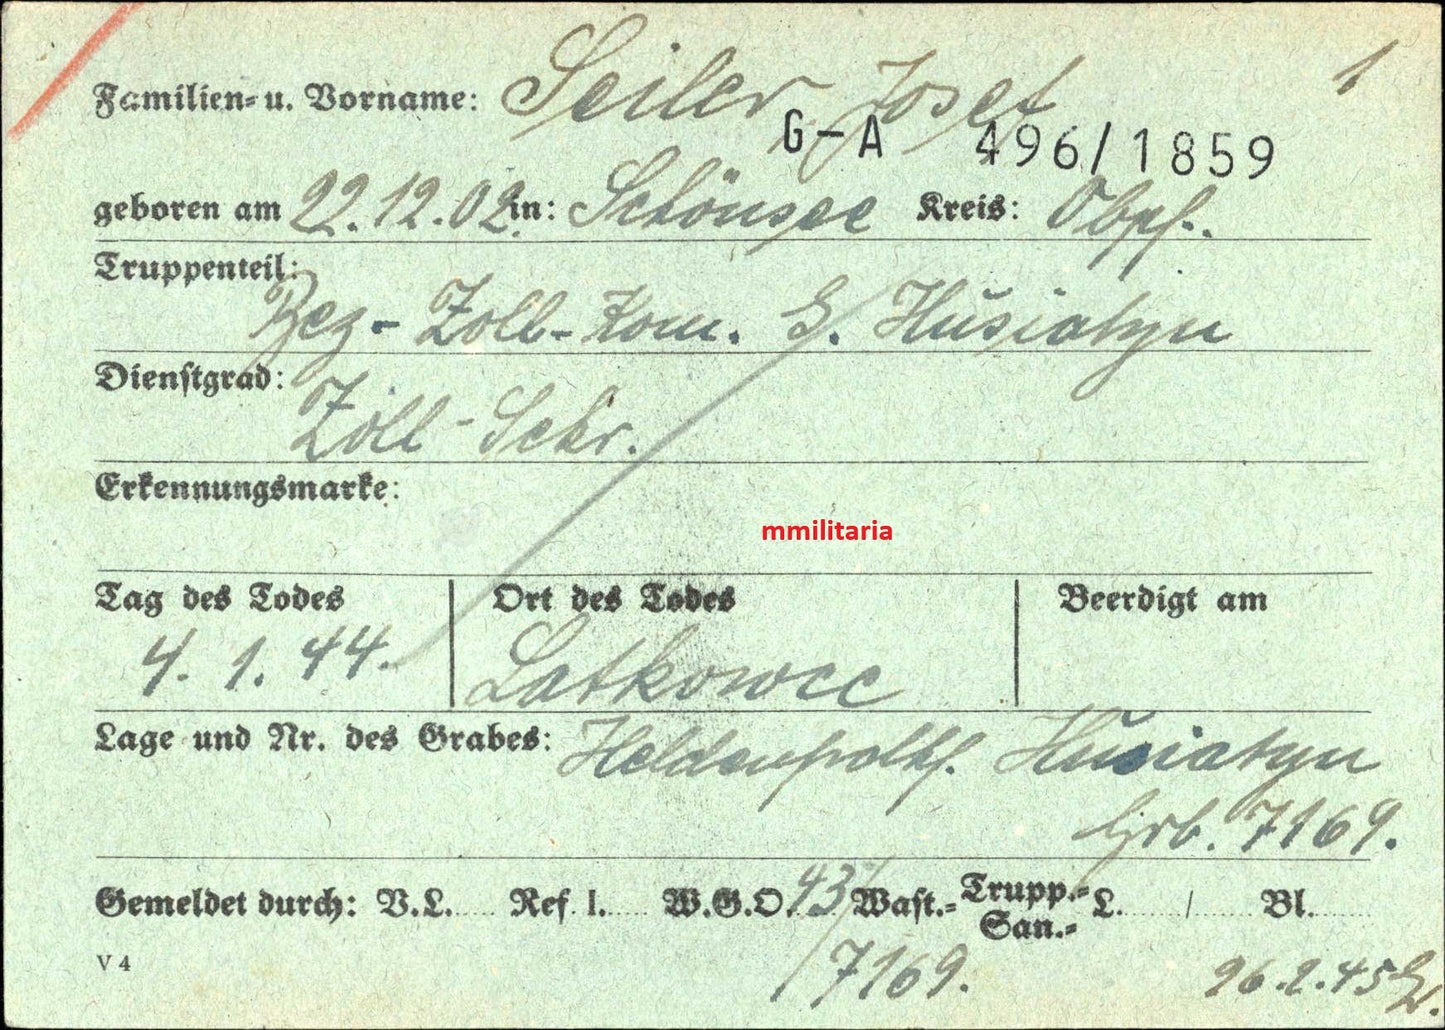 Familien- u. Vorname: Seiler Josef 1
G-A 496/1859
geboren am 22.12.02 in: Schönsee Kreis: Obpf.
Truppenteil:
Bez-Zoll-Kom. G. Husiatyn
Dienstgrad:
Zoll-Sekr.
Erkennungsmarke:
mmilitaria
Tag des Todes Ort des Todes Beerdigt am
4. 1. 44. Latkowce
Lage und Nr. des Grabes: Heldenfriedhf. Husiatyn
Grb. 7169.
Gemeldet durch: V.L. Ref. I. W.G.O. 43/ Wast.- Trupp.- San.- L. / Bl.
7169.
V 4 26.2.45